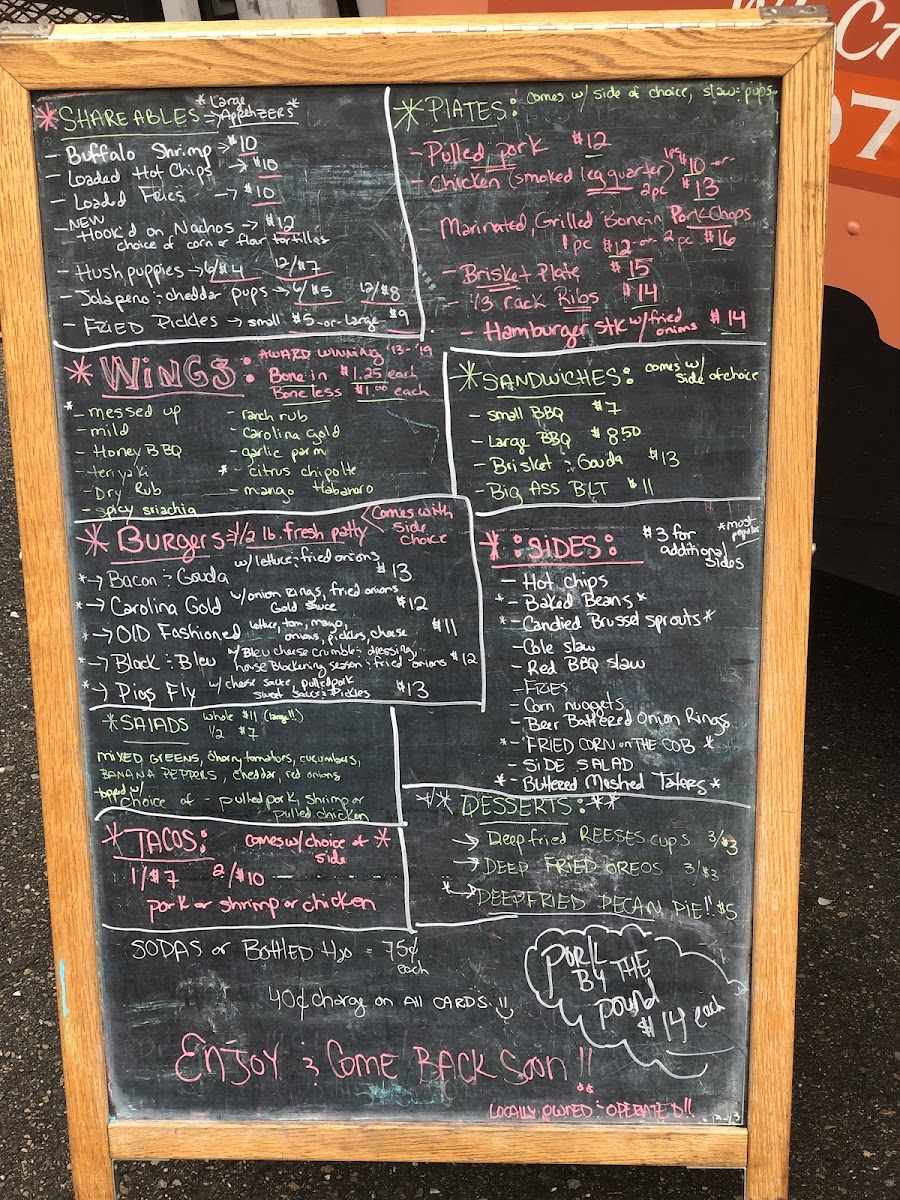 *SHAREABLES → *Large Appetizers*
- Buffalo Shrimp → $10
- Loaded Hot Chips → $10
- Loaded Fries → $10
- NEW Hook'd on Nachos → $12
choice of corn or flour tortillas
- Hushpuppies → 6/$4 12/$7
- Jalapeno & cheddar pups → 6/$5 12/$8
- FRIED Pickles → small $5 -or- large $9
*PLATES: comes w/ side of choice, slaw & pups
- Pulled pork $12
- Chicken (smoked leg quarter) 1pc $10 -or-
2pc $13
Marinated, Grilled Bone in Pork Chops
1pc $12 -or- 2pc $16
- Brisket Plate $15
- 1/3 rack Ribs $14
- Hamburger Stk w/ fried onions $14
*WINGS: AWARD WINNING '13-'19
Bone in $1.25 each
Boneless $1.00 each
*- messed up
- mild
- Honey BBQ
- teriyaki
- Dry Rub
- spicy sriachia
- ranch rub
- Carolina Gold
- garlic parm
* citrus chipolte
- mango Habanaro
*SANDWICHES: comes w/ side of choice
- small BBQ $7
- Large BBQ $8.50
- Brisket & Gouda $13
- Big Ass BLT $11
*Burgers 1/2 lb. fresh patty Comes with side choice
*→ Bacon & Gouda w/ lettuce & fried onions $13
*→ Carolina Gold w/ onion rings, fried onions Gold sauce $12
*→ Old Fashioned lettuce, tom, mayo, onions, pickles, cheese $11
*→ Black & Bleu w/ Bleu cheese crumble & dressing, house blackening season & fried onions $12
*→ Pigs Fly w/ cheese sauce, pulled pork sweet sauce & Pickles $13
*:SIDES: $3 for additional sides *most popular
- Hot chips
*- Baked Beans*
*- Candied Brussel sprouts*
- Cole slaw
- Red BBQ slaw
- FRIES
- Corn nuggets
- Beer Battered Onion Rings
*- FRIED CORN on THE COB *
- SIDE SALAD
*- Buttered Mashed Taters *
*SALADS whole $11 (large!!)
1/2 $7
MIXED GREENS, cherry tomatoes, cucumbers,
BANANA PEPPERS, cheddar, red onions
topped w/ choice of - pulled pork, shrimp or
pulled chicken
*TACOS: comes w/ choice of side *
1/$7 2/$10
pork or shrimp or chicken
** DESSERTS: **
→ Deep fried REESES cups 3/$3
→ DEEP FRIED OREOS 3/$3
*→ DEEPFRIED PECAN PIE!! $5
SODAS or Bottled H2o = 75¢ each
40¢ charge on ALL CARDS!!
PORK
BY THE
pound
$14 each
ENJOY & Come BACK Soon!!
LOCALLY OWNED & OPERATED!!